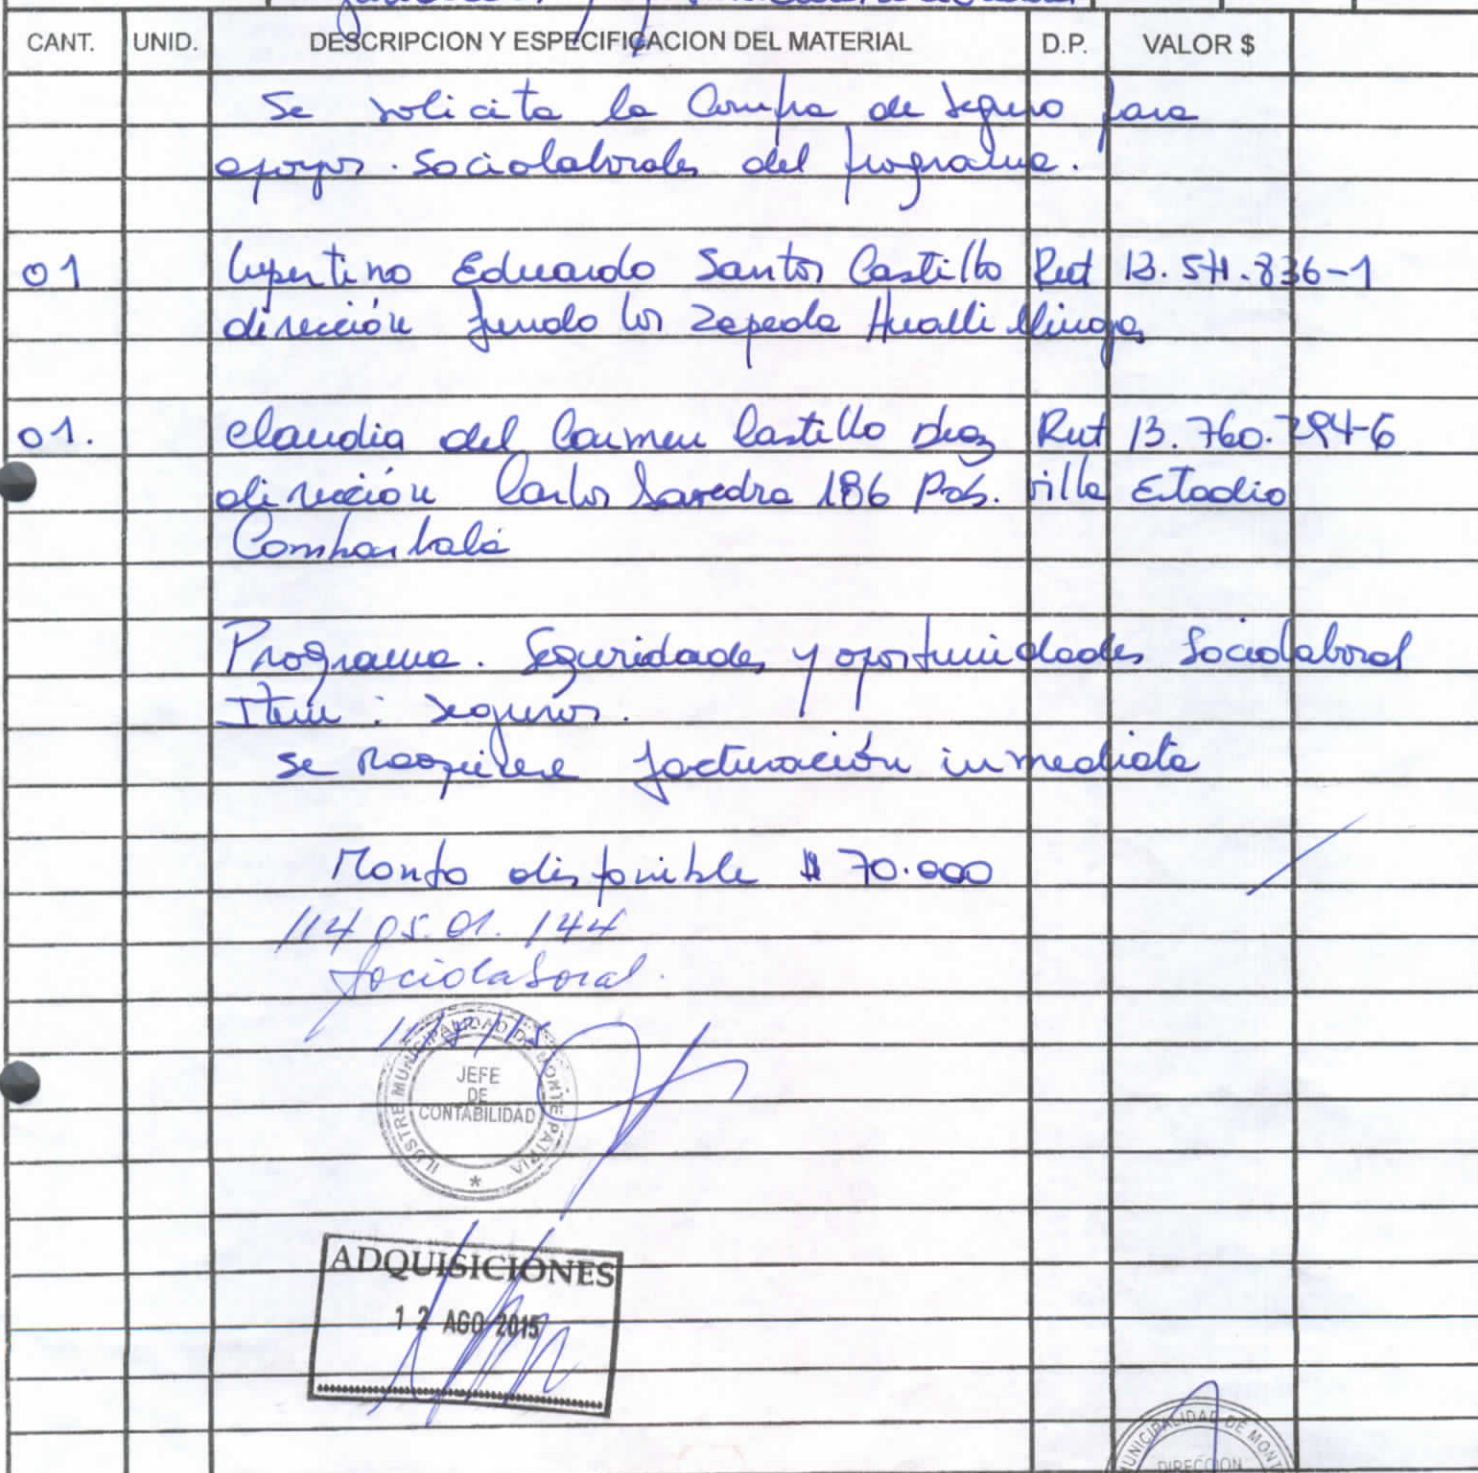 CANT. UNID. DESCRIPCION Y ESPECIFICACION DEL MATERIAL D.P. VALOR $
Se solicita la Compra de Seguro para
apoyos . Sociolaborales del programa.
01 Lupertino Eduardo Santos Castillo Rut
dirección fundo los Zepeda Hualli
01. Claudia del Carmen Castillo Diaz Rut 13.760.294-6
dirección Carlos Savedra 186 Pob. villa Estadio
Combarbalá
Programa. Seguridades y oportunidades Sociolaboral
Item : Seguros.
se requiere facturación inmediata
Monto disponible $ 70.000
114.05.01.144
Sociolaboral.
ILUSTRE MUNICIPALIDAD DE MONTE PATRIA
JEFE
DE
CONTABILIDAD
*
ADQUISICIONES
12 AGO 2015
MUNICIPALIDAD DE MONT
DIRECCION